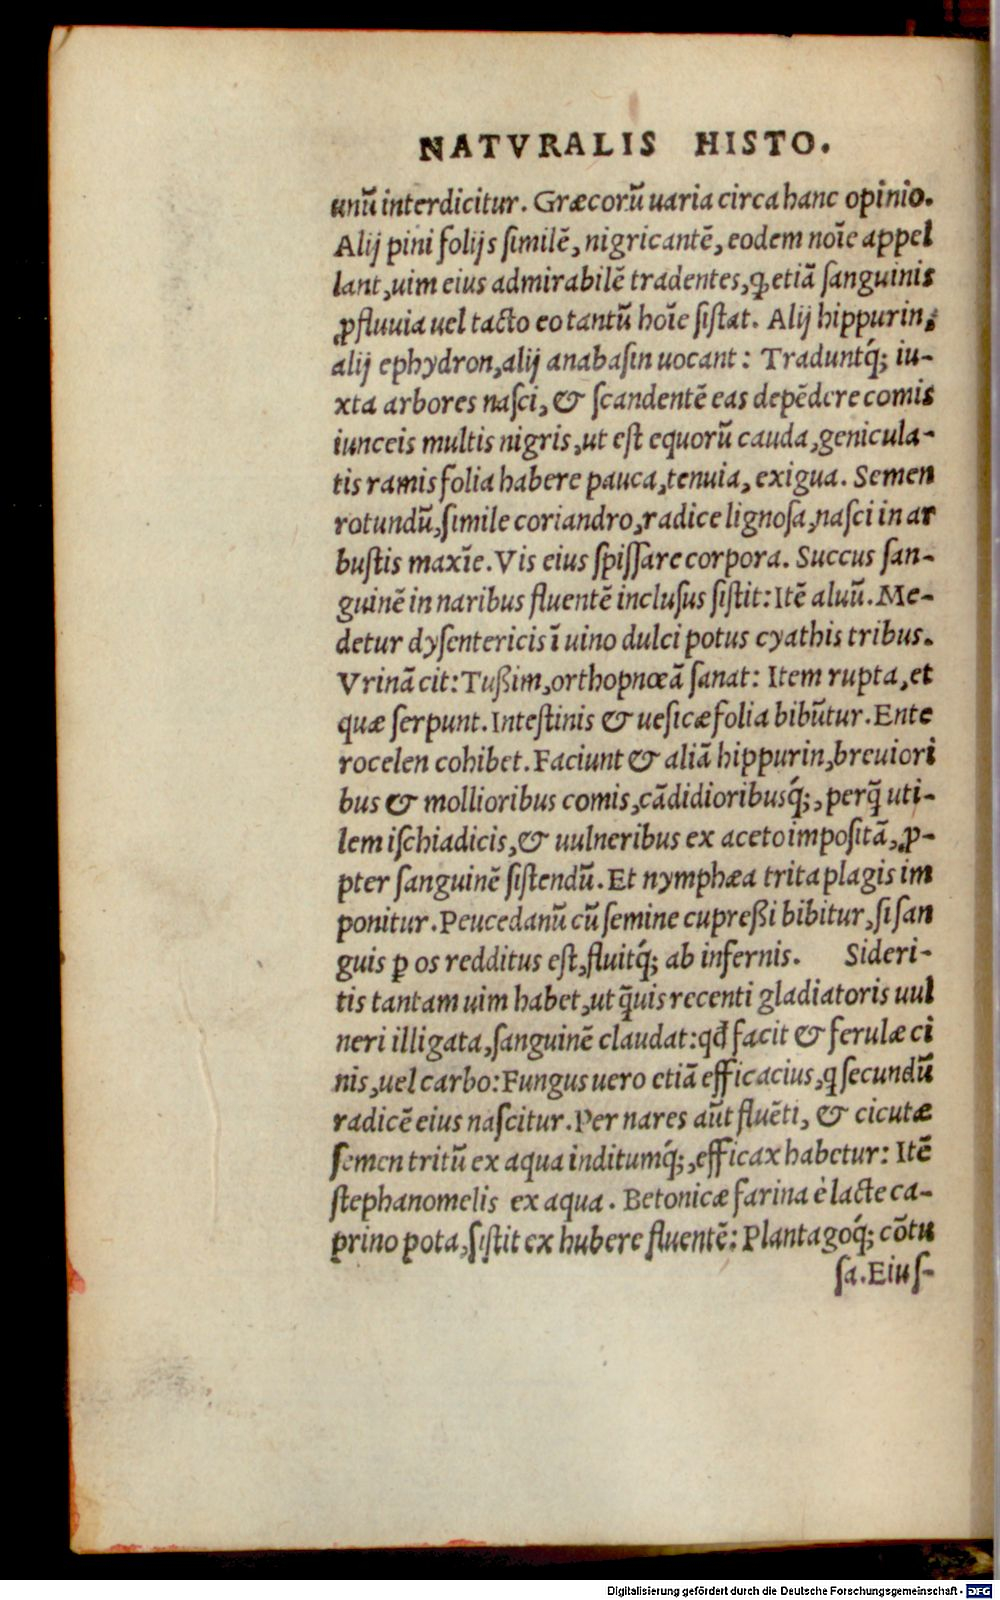 NATVRALIS HISTO.
unũ interdicitur. Græcorũ uaria circa hanc opinio.
Alij pini folijs similẽ, nigricantẽ, eodem noĩe appel
lant, uim eius admirabilẽ tradentes, ꝙ etiã sanguinis
ꝓfluuia uel tacto eo tantũ hoĩe sistat. Alij hippurin,
alij ephydron, alij anabasin uocant: Traduntq́; iu-
xta arbores nasci, & scandentẽ eas depẽdere comis
iunceis multis nigris, ut est equorũ cauda, genicula-
tis ramis folia habere pauca, tenuia, exigua. Semen
rotundũ, simile coriandro, radice lignosa, nasci in ar
bustis maxĩe. Vis eius spissare corpora. Succus san-
guinẽ in naribus fluentẽ inclusus sistit: Itẽ aluũ. Me-
detur dysentericis ĩ uino dulci potus cyathis tribus.
Vrinã cit: Tußim, orthopnœã sanat: Item rupta, et
quæ serpunt. Intestinis & uesicæ folia bibũtur. Ente
rocelen cohibet. Faciunt & aliã hippurin, breuiori
bus & mollioribus comis, cãdidioribusq́;, perq̃ uti-
lem ischiadicis, & uulneribus ex aceto impositã, ꝓ-
pter sanguinẽ sistendũ. Et nymphæa trita plagis im
ponitur. Peucedanũ cũ semine cupreßi bibitur, si san
guis ꝑ os redditus est, fluitq́; ab infernis. Sideri-
tis tantam uim habet, ut q̃uis recenti gladiatoris uul
neri illigata, sanguinẽ claudat: qđ facit & ferulæ ci
nis, uel carbo: Fungus uero etiã efficacius, ꝗ secundũ
radicẽ eius nascitur. Per nares aũt fluẽti, & cicutæ
semen tritũ ex aqua inditumq́;, efficax habetur: Itẽ
stephanomelis ex aqua. Betonicæ farina è lacte ca-
prino pota, sistit ex hubere fluentẽ: Plantagoq́; cõtu
sa. Eius-
Digitalisierung gefördert durch die Deutsche Forschungsgemeinschaft - DFG